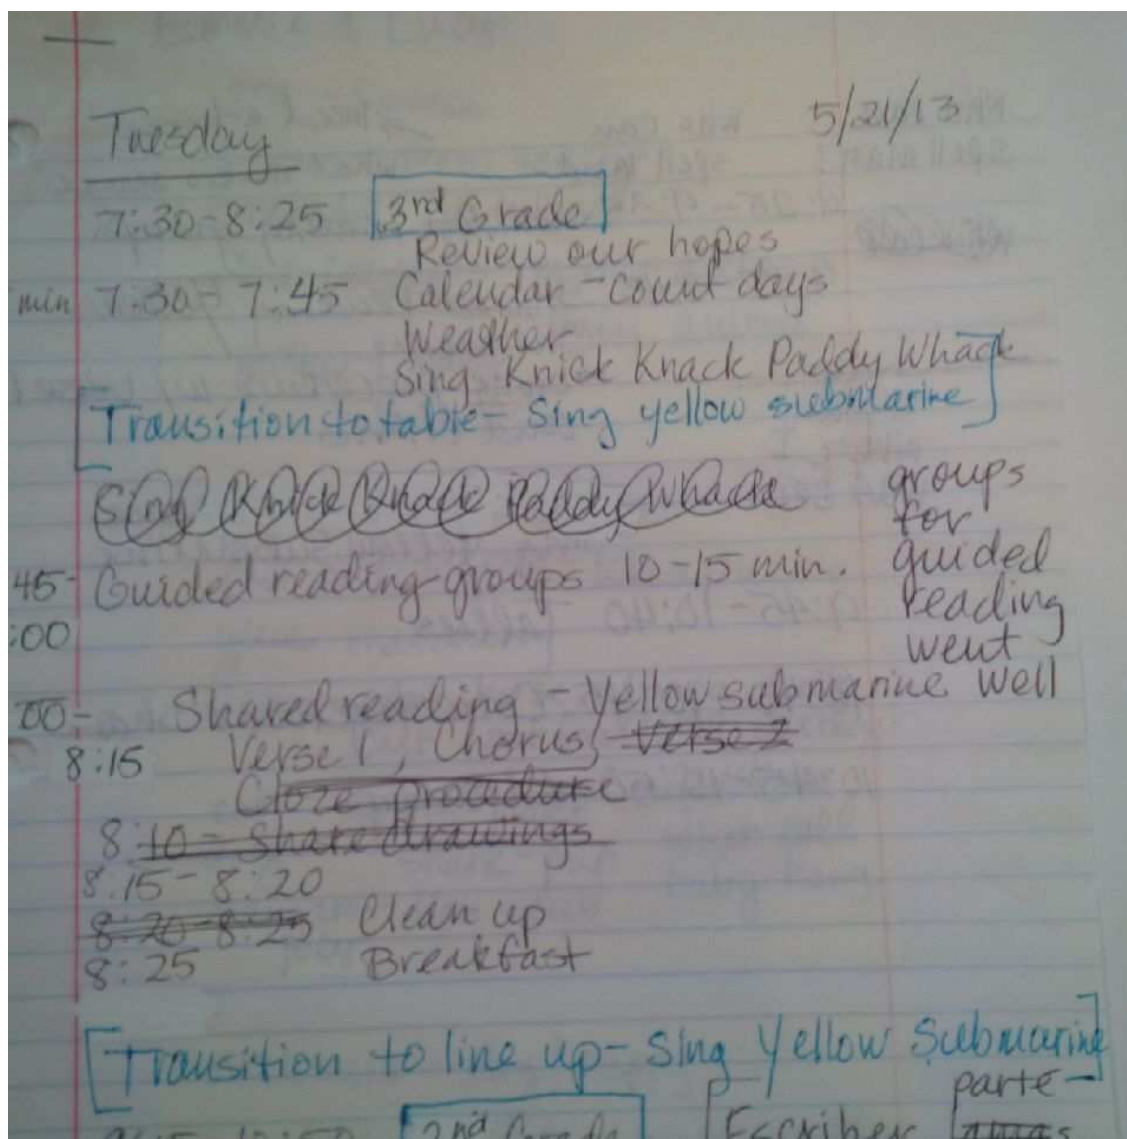 Tuesday 5/21/13
7:30-8:25 3rd Grade
Review our hopes
min 7:30-7:45 Calendar - Count days
Weather
Sing Knick Knack Paddy Whack
[Transition to table - Sing yellow submarine]
Sing Knick Knack Paddy Whack
groups
for
45- Guided reading groups 10-15 min. guided
:00 reading
went
00- Shared reading - Yellow submarine well
8:15 Verse 1, Chorus, Verse 2
Cloze procedure
8:10 - Share drawings
8:15-8:20
8:20-8:25 Clean up
8:25 Breakfast
[Transition to line up - Sing Yellow Submarine]
parte
2nd Grade Escriber